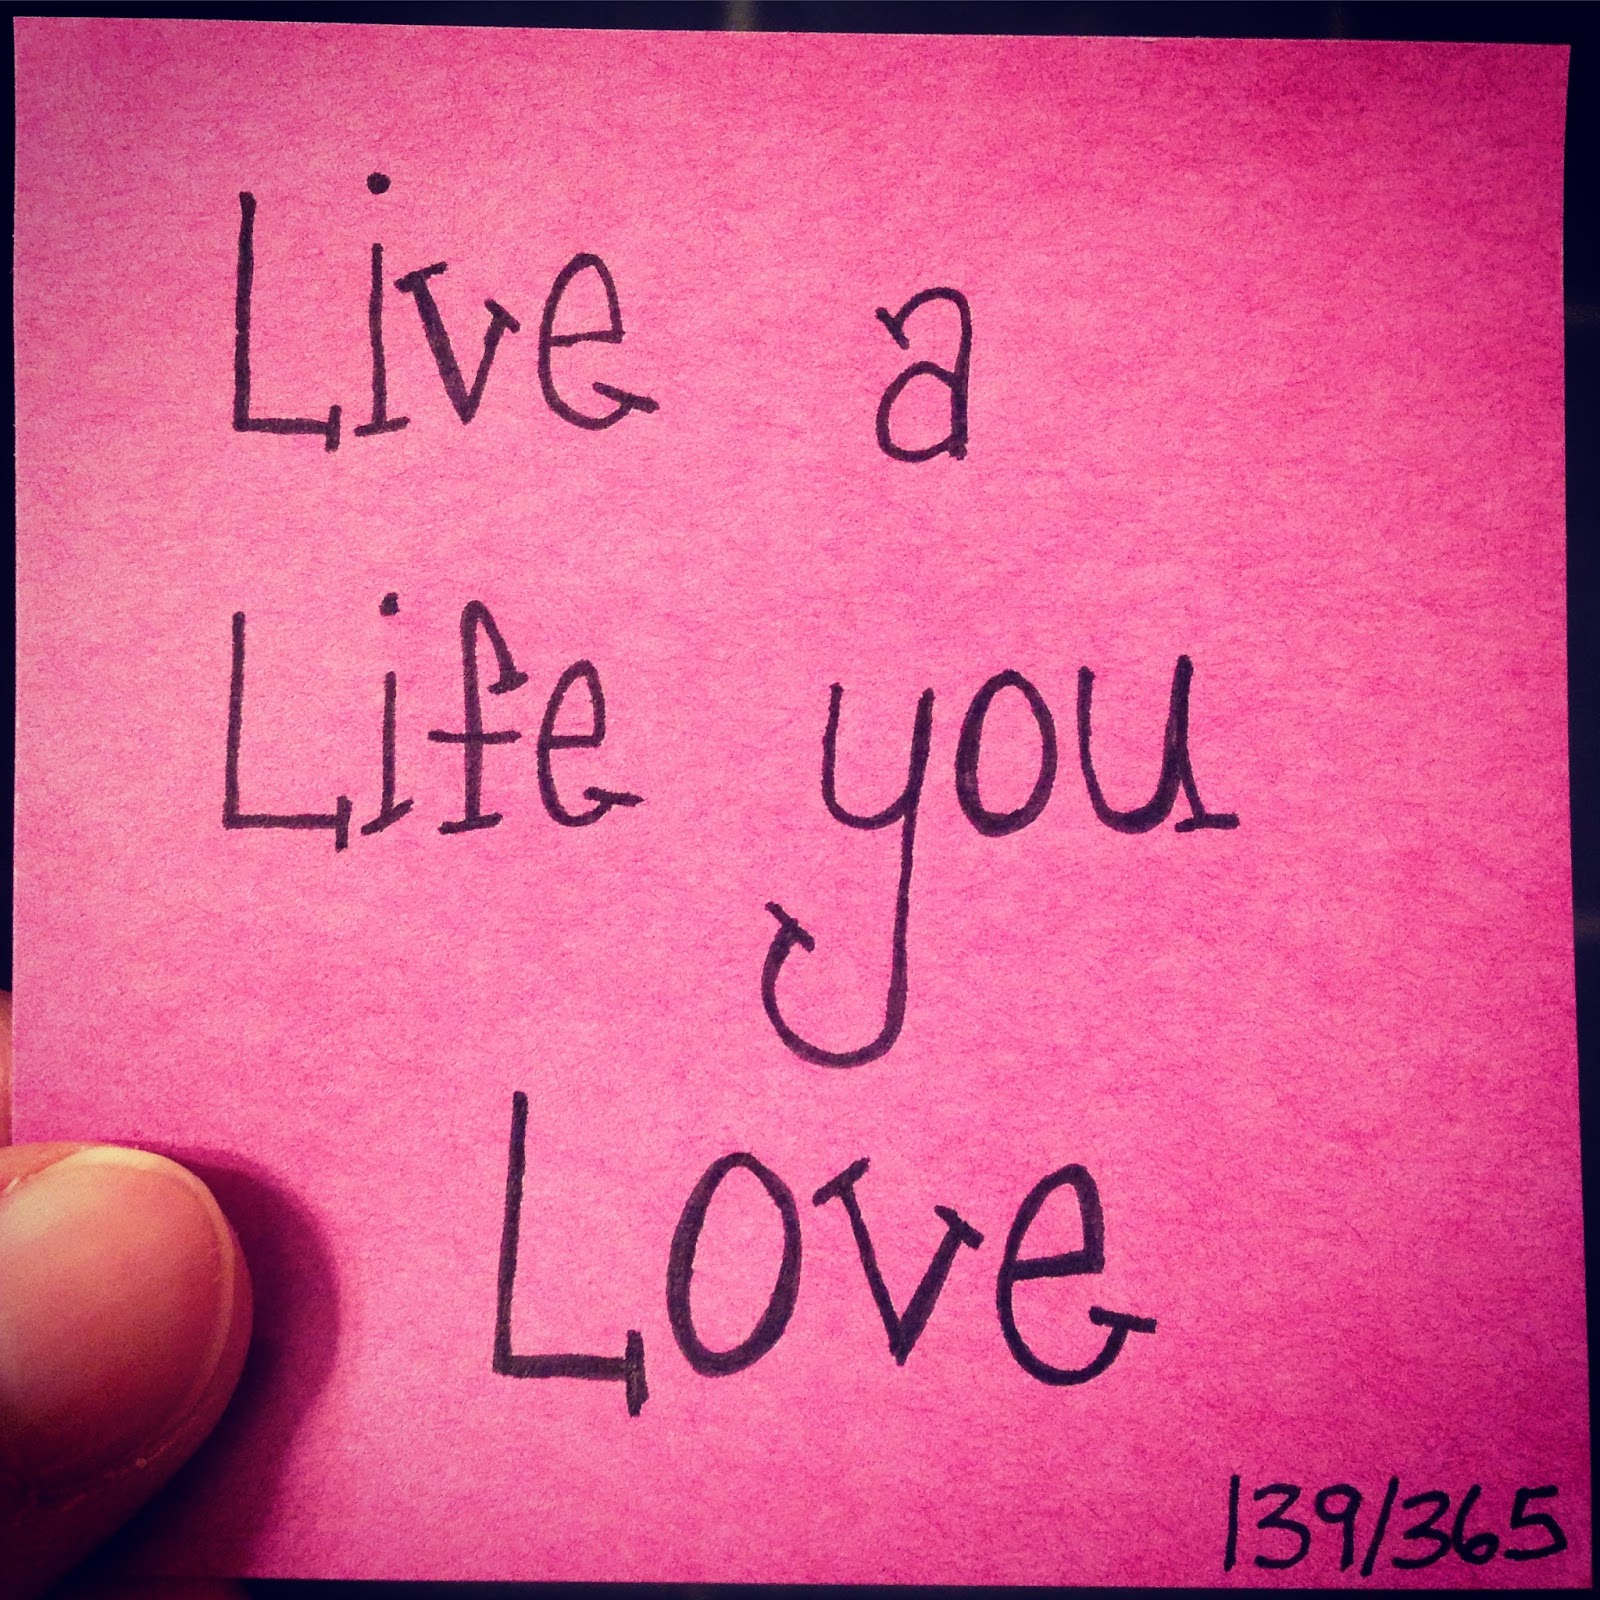 Live a
Life you
Love
139/365